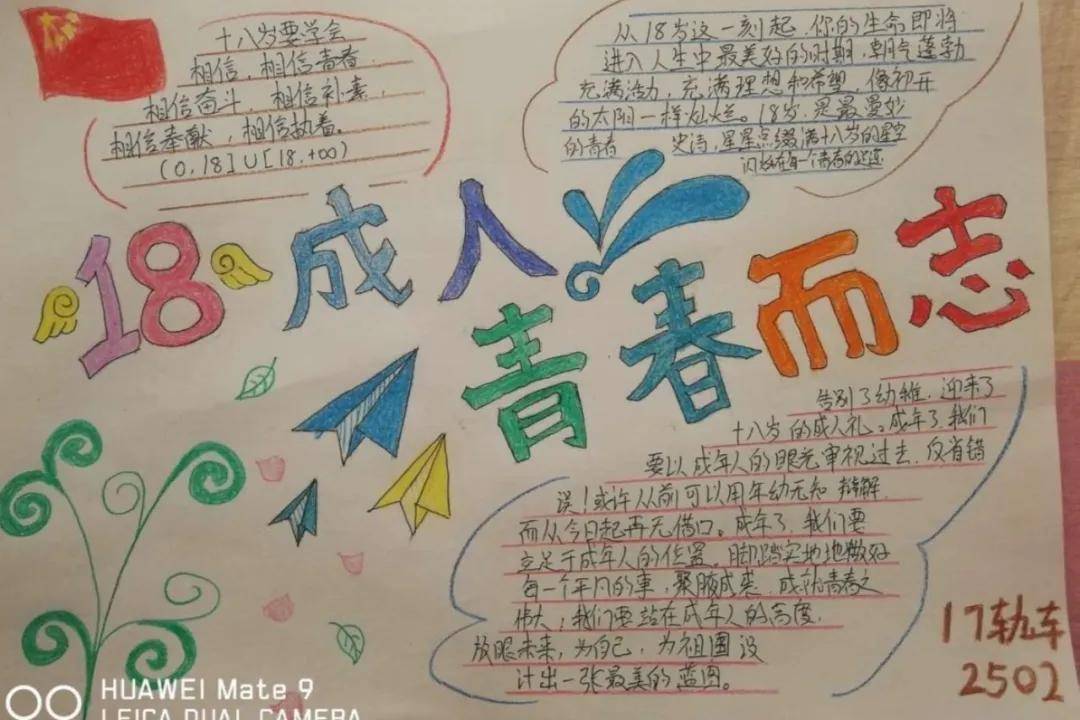 十八岁要学会
相信，相信青春，
相信奋斗，相信朴素，
相信奉献，相信执着。
(0,18]∪[18,+∞)
从18岁这一刻起，你的生命即将
进入人生中最美好的时期，朝气蓬勃
充满活力，充满理想和希望，像初升
的太阳一样灿烂。18岁，是最曼妙
的青春 史诗，星星点缀满十八岁的星空
闪烁在每一个青春的
18成人
青春而志
告别了幼稚，迎来了
十八岁的成人礼。成年了，我们
要以成年人的眼光审视过去，反省错
误！或许从前可以用年幼无知 辩解，
而从今日起再无借口。成年了，我们要
立足于成年人的位置，脚踏实地地做好
每一个平凡的事，聚腋成裘，成就青春之
伟大；我们要站在成年人的高度，
放眼未来，为自己，为祖国 设
计出一张最美的蓝图。
17轨车
2502
HUAWEI Mate 9
LEICA DUAL CAMERA